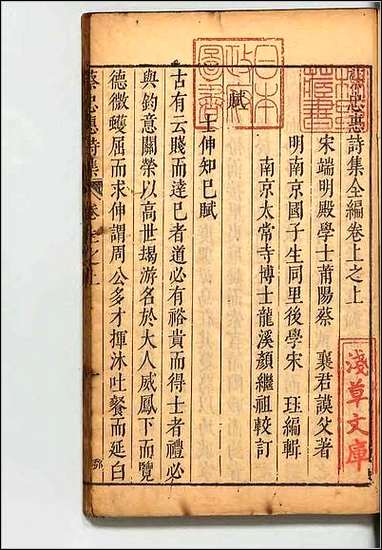 蔡忠惠詩集全編卷上之上
宋端明殿學士莆陽蔡 襄君謨父著
明南京國子生同里後學宋 珏編輯
南京太常寺博士龍溪顏繼祖較訂
賦
士伸知已賦
古有云賤而達已者道必有裕貴而得士者禮必
與鈞意關榮以高世堨游名於大人威鳳下而覽
德微蠖屈而求伸謂周公多才揮沐吐餐而延白
蔡忠惠詩集
卷上之上
日本
政
圖書
淺草文庫
藏書